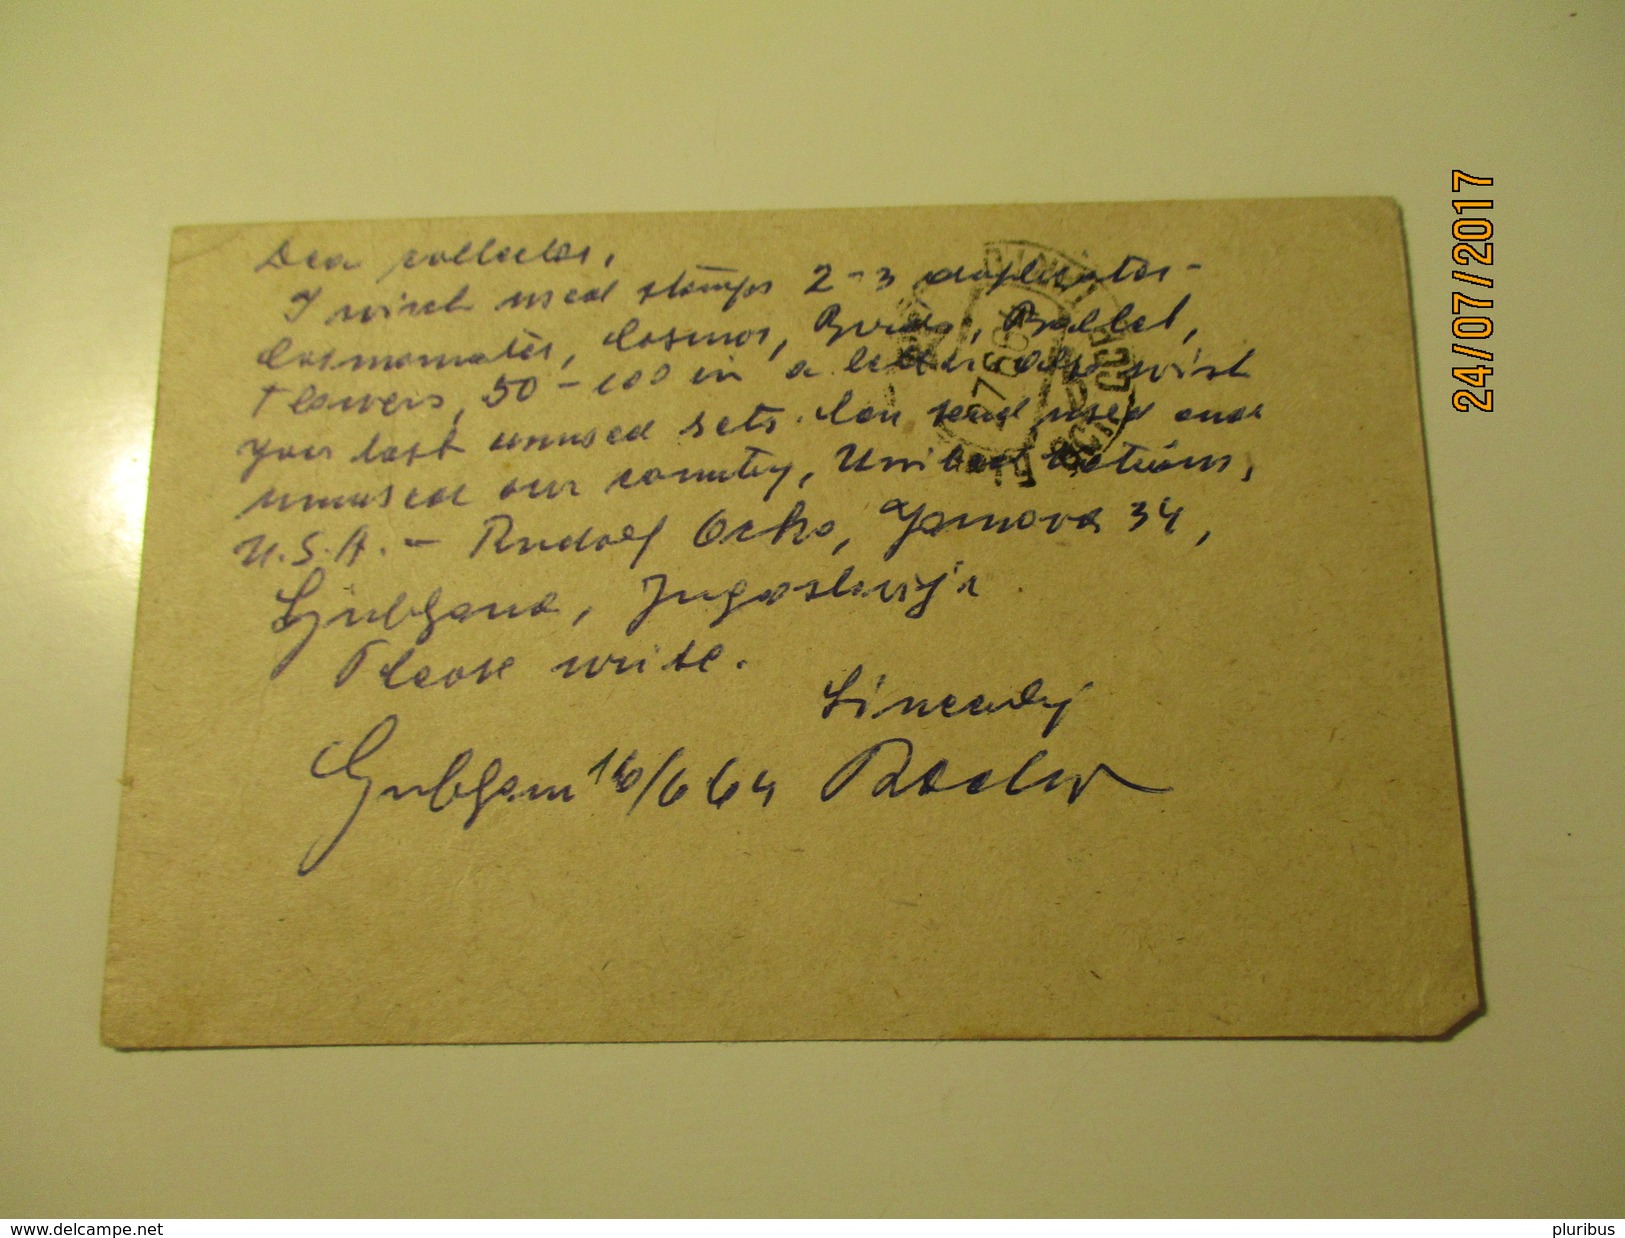 Dea collector,
I wish used stamps 2-3 duplicates -
Cosmonates, Cosmos, Birds, Ballet,
Flowers, 50-100 in a letter also wish
your last unused sets. Can send used and
unused our country, United Nations,
U.S.A. - Rudolf Ocko, 34,
Ljubljana, Jugoslavija.
Please write.
Sincerely
Ljubljana 16/6 64
24/07/2017
www.delcampe.net
pluribus